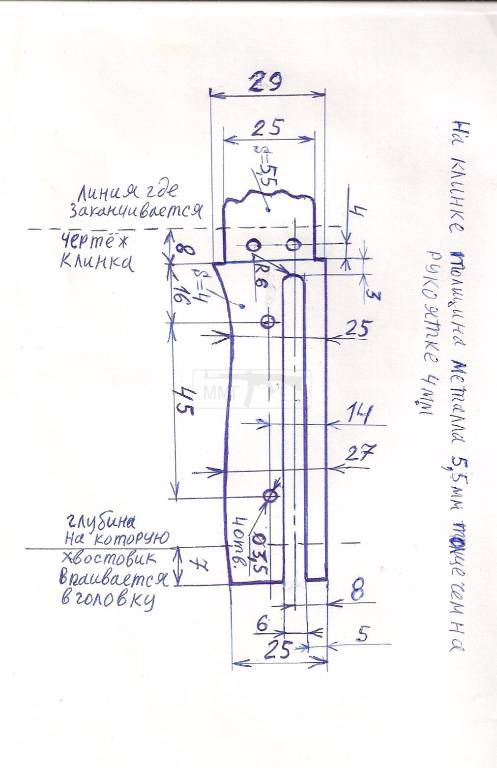 29
25
s=5,5
4
линия где
заканчивается
чертёж
клинка
8
R6
3
s=4
16
25
45
ММГ
14
27
глубина
на которую
хвостовик
впаивается
в головку
7
4 отв
Ø3,5
8
6
5
25
На клинке толщина металла 5,5мм толще чем на
рукоятке 4мм